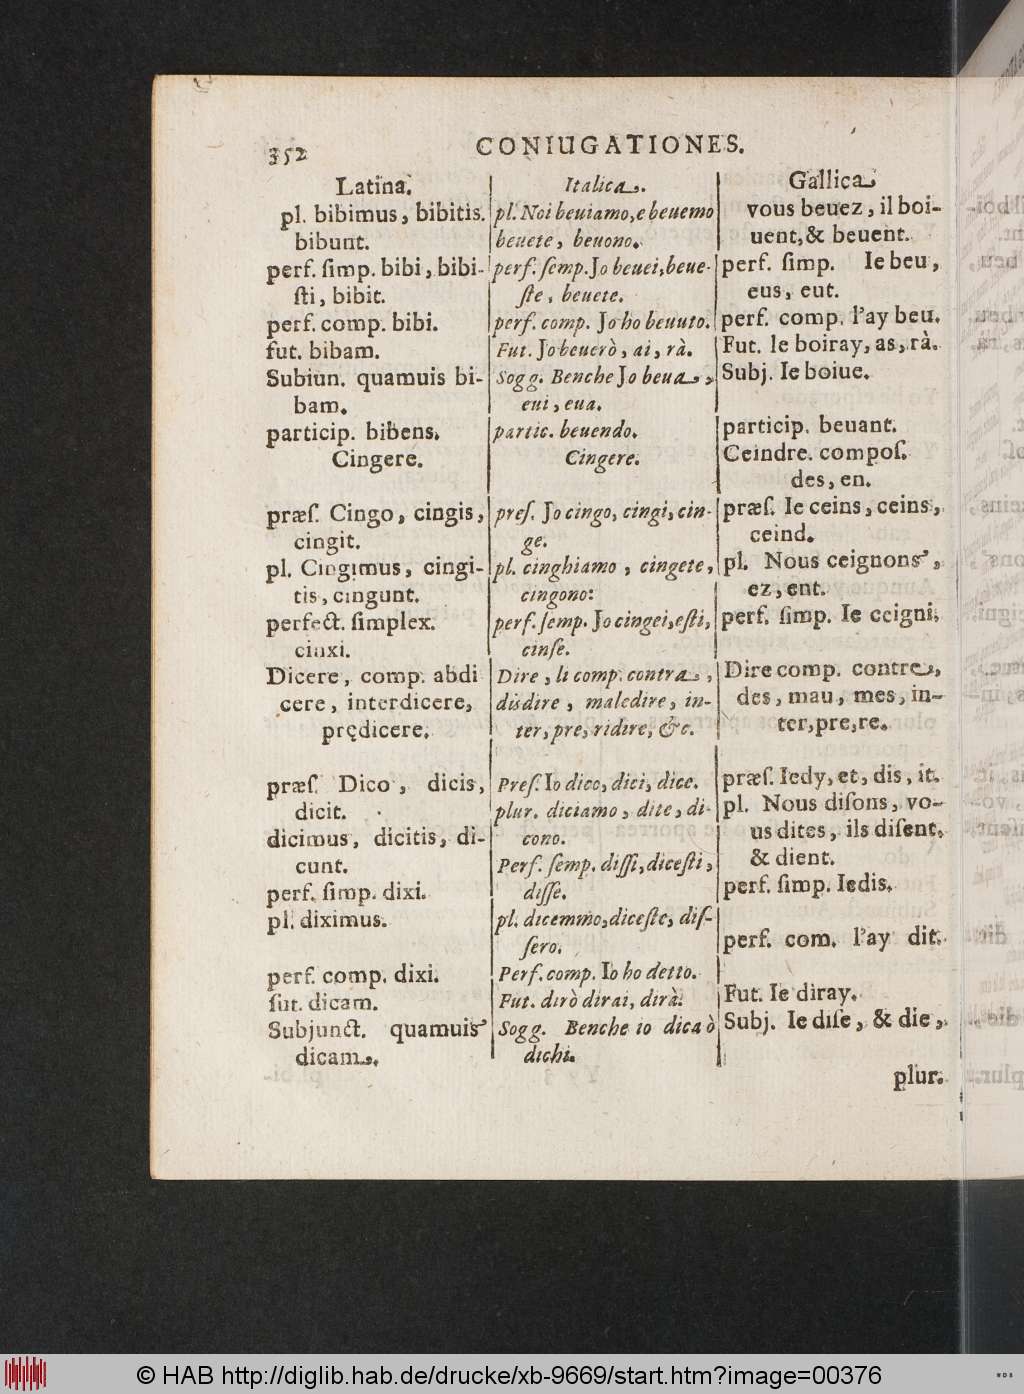 352
CONIUGATIONES.
Latina.
pl. bibimus, bibitis.
bibunt.
perf. ſimp. bibi, bibi-
ſti, bibit.
perf. comp. bibi.
fut. bibam.
Subiun. quamuis bi-
bam.
particip. bibens.
Cingere.
præſ. Cingo, cingis,
cingit.
pl. Cingimus, cingi-
tis, cingunt.
perfect. ſimplex.
cinxi.
Dicere, comp. abdi
cere, interdicere,
prędicere.
præſ. Dico, dicis,
dicit.
dicimus, dicitis, di-
cunt.
perf. ſimp. dixi.
pl. diximus.
perf. comp. dixi.
fut. dicam.
Subjunct. quamuis
dicam.
Italica.
pl. Noi beuiamo, e beuemo
beuete, beuono.
perf. ſemp. Jo beuei, beue-
ſte, beuete.
perf. comp. Jo ho beuuto.
Fut. Jo beuerò, ai, rà.
Sogg. Benche Jo beua,
eui, eua.
partic. beuendo.
Cingere.
preſ. Jo cingo, cingi, cin-
ge.
pl. cinghiamo, cingete,
cingono:
perf. ſemp. Jo cingei, eſti,
cinſe.
Dire, li comp. contra,
disdire, maledire, in-
ter, pre, ridire, &c.
Preſ. Io dico, dici, dice.
plur. diciamo, dite, di-
cono.
Perf. ſemp. diſſi, diceſti,
diſſe.
pl. dicemmo, diceſte, diſ-
ſero.
Perf. comp. Io ho detto.
Fut. dirò dirai, dirà.
Sogg. Benche io dica ò
dichi.
Gallica
vous beuez, il boi-
uent, & beuent.
perf. ſimp. Ie beu,
eus, eut.
perf. comp. l'ay beu.
Fut. Ie boiray, as, rà.
Subj. Ie boiue.
particip. beuant.
Ceindre. compoſ.
des, en.
præſ. Ie ceins, ceins,
ceind.
pl. Nous ceignons,
ez, ent.
perf. ſimp. Ie ceigni.
Dire comp. contre,
des, mau, mes, in-
ter, pre, re.
præſ. Iedy, et, dis, it.
pl. Nous diſons, vo-
us dites, ils diſent.
& dient.
perf. ſimp. Iedis.
perf. com. l'ay dit.
Fut. Ie diray.
Subj. Ie diſe, & die,
plur.
© HAB http://diglib.hab.de/drucke/xb-9669/start.htm?image=00376